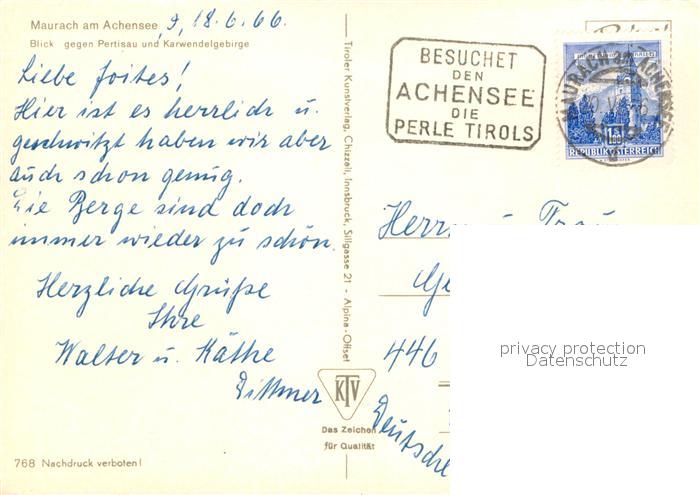 Maurach am Achensee, 18.6.66.
Blick gegen Pertisau und Karwendelgebirge
Liebe Joites!
Hier ist es herrlich u.
geschwitzt haben wir aber
auch schon genug.
Die Berge sind doch
immer wieder zu schön.
Herzliche Grüße
Ihre
Walter u. Käthe
Dittmer
768 Nachdruck verboten!
Tiroler Kunstverlag, Chizzali, Innsbruck, Sillgasse 21 - Alpina-Offset
KTV
Das Zeichen
für Qualität
BESUCHET
DEN
ACHENSEE
DIE
PERLE TIROLS
MAURACH AM ACHENSEE
REPUBLIK ÖSTERREICH
Herrn u. Frau
446
Deutsche
privacy protection
Datenschutz